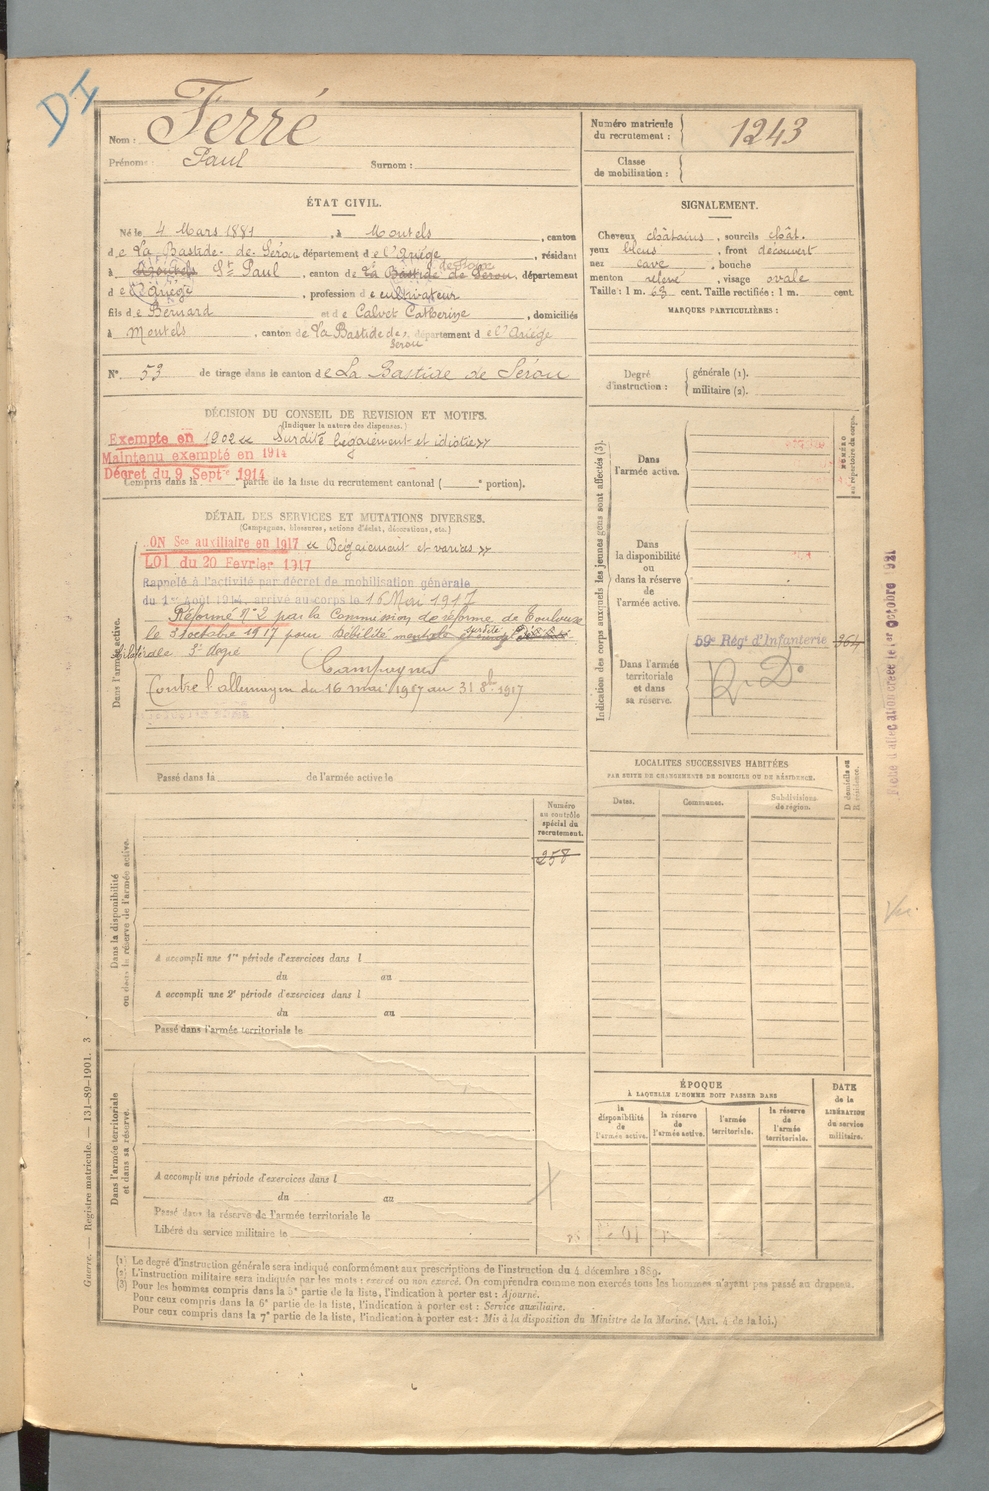 DI
Nom : Ferré
Prénoms : Paul Surnom :
Numéro matricule du recrutement : 1243
Classe de mobilisation :
ÉTAT CIVIL.
Né le 4 Mars 1881, à Montels, canton
de La Bastide-de-Sérou, département de l'Ariège, résidant
à Montels St Paul, canton de La Bastide de Sérou, département
de l'Ariège, profession de cultivateur
fils de Bernard et de Calvet Catherine, domiciliés
à Montels, canton de La Bastide de Sérou, département de l'Ariège
N° 53 de tirage dans le canton de La Bastide de Sérou
SIGNALEMENT.
Cheveux châtains, sourcils chât.
yeux bleus, front découvert
nez cave, bouche
menton relevé, visage ovale
Taille : 1 m. 63 cent. Taille rectifiée : 1 m. cent.
MARQUES PARTICULIÈRES :
Degré d'instruction : générale (1).
militaire (2).
DÉCISION DU CONSEIL DE REVISION ET MOTIFS.
(Indiquer la nature des dispenses.)
Exempté en 1902 « Surdité bégaiement et idiotie »
Maintenu exempté en 1914
Décret du 9 Septre 1914
Compris dans la partie de la liste du recrutement cantonal ( e portion).
DÉTAIL DES SERVICES ET MUTATIONS DIVERSES.
(Campagnes, blessures, actions d'éclat, décorations, etc.)
Dans l'armée active.
ON Sce auxiliaire en 1917 « Bégaiement et varices »
LOI du 20 Février 1917
Rappelé à l'activité par décret de mobilisation générale
du 1er Août 1914, arrivé au corps le 16 Mai 1917
Réformé n° 2 par la Commission de réforme de Toulouse
le 31 octobre 1917 pour débilité mentale surdité
bilatérale
Campagnes
Contre l'allemagne du 16 mai 1917 au 31 8bre 1917
Passé dans la de l'armée active le
Indication des corps auxquels les jeunes gens sont affectés (3).
NUMÉRO au répertoire du corps.
Dans l'armée active.
Dans la disponibilité ou dans la réserve de l'armée active.
Dans l'armée territoriale et dans sa réserve.
59e Rég d'Infanterie 364
Fiche d'allocation créée le 1er Octobre 1921
LOCALITÉS SUCCESSIVES HABITÉES
PAR SUITE DE CHANGEMENTS DE DOMICILE OU DE RÉSIDENCE.
Dates. Communes. Subdivisions de région. D domicile ou R résidence.
Numéro au contrôle spécial du recrutement.
258
Vu
Dans la disponibilité ou dans la réserve de l'armée active.
A accompli une 1re période d'exercices dans l
du au
A accompli une 2e période d'exercices dans l
du au
Passé dans l'armée territoriale le
Dans l'armée territoriale et dans sa réserve.
A accompli une période d'exercices dans l
du au
Passé dans la réserve de l'armée territoriale le
Libéré du service militaire le
ÉPOQUE
À LAQUELLE L'HOMME DOIT PASSER DANS
la disponibilité de l'armée active.
la réserve de l'armée active.
l'armée territoriale.
la réserve de l'armée territoriale.
DATE de la LIBÉRATION du service militaire.
Guerre. — Registre matricule. — 131-89-1901. 3
(1) Le degré d'instruction générale sera indiqué conformément aux prescriptions de l'instruction du 4 décembre 1889.
(2) L'instruction militaire sera indiquée par les mots : exercé ou non exercé. On comprendra comme non exercés tous les hommes n'ayant pas passé au drapeau.
(3) Pour les hommes compris dans la 5e partie de la liste, l'indication à porter est : Ajourné.
Pour ceux compris dans la 6e partie de la liste, l'indication à porter est : Service auxiliaire.
Pour ceux compris dans la 7e partie de la liste, l'indication à porter est : Mis à la disposition du Ministre de la Marine. (Art. 4 de la loi.)